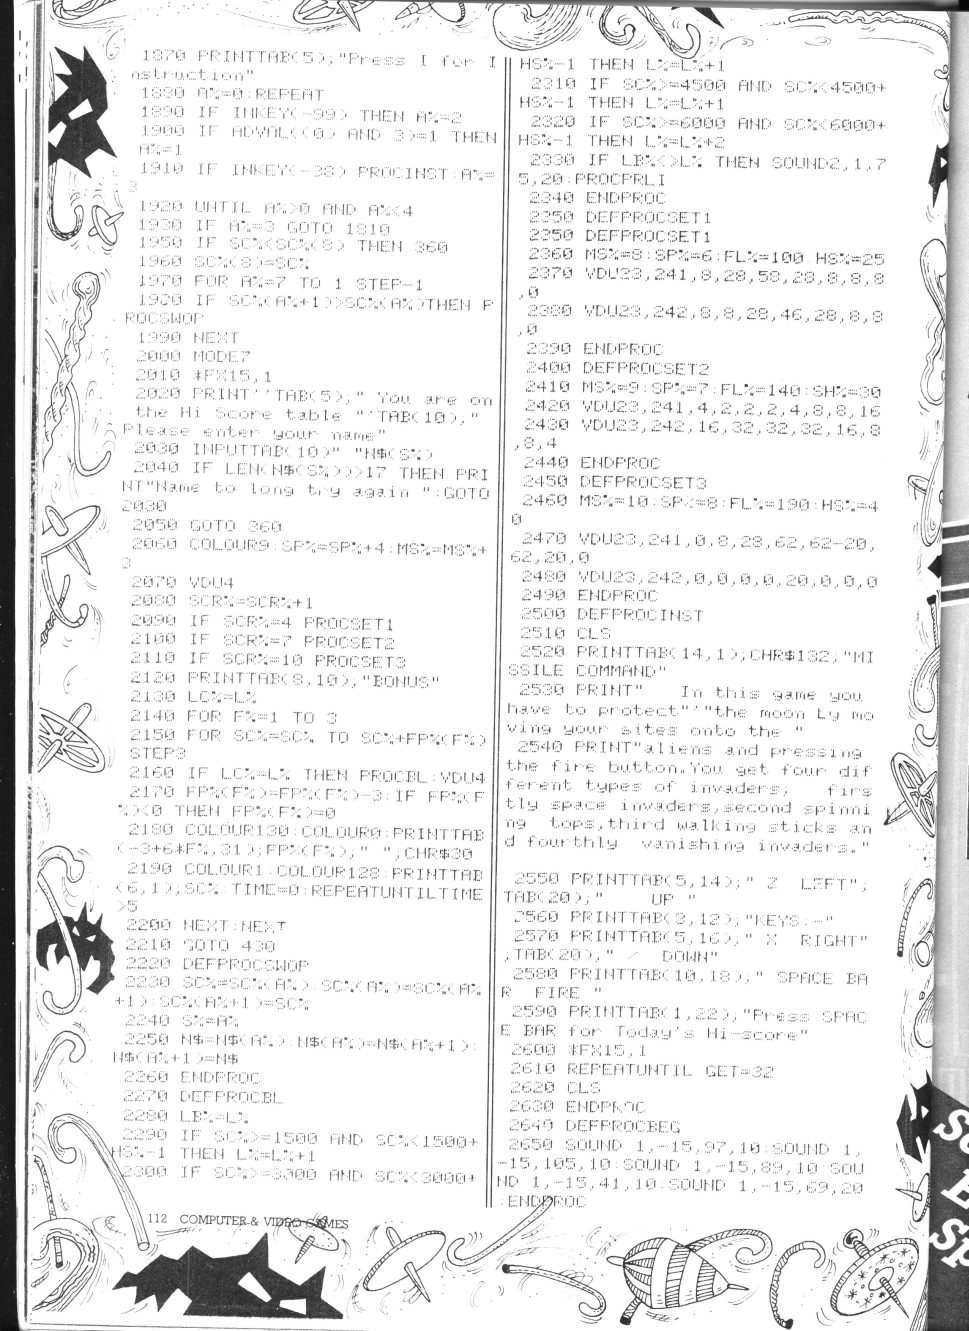 1870 PRINTTAB(5);"Press I for I
nstruction"
1880 A%=0:REPEAT
1890 IF INKEY(-99) THEN A%=2
1900 IF ADVAL((0) AND 3)=1 THEN
A%=1
1910 IF INKEY(-38) PROCINST:A%=
3
1920 UNTIL A%>0 AND A%<4
1930 IF A%=3 GOTO 1810
1950 IF SC%<SC%(8) THEN 360
1960 SC%(8)=SC%
1970 FOR A%=7 TO 1 STEP-1
1980 IF SC%(A%+1)>SC%(A%)THEN P
ROCSWOP
1990 NEXT
2000 MODE7
2010 *FX15,1
2020 PRINT''TAB(5);" You are on
the Hi Score table "'TAB(10);"
Please enter your name"
2030 INPUTTAB(10)" "N$(S%)
2040 IF LEN(N$(S%))>17 THEN PRI
NT"Name to long try again ":GOTO
2030
2050 GOTO 360
2060 COLOUR9:SP%=SP%+4:MS%=MS%+
3
2070 VDU4
2080 SCR%=SCR%+1
2090 IF SCR%=4 PROCSET1
2100 IF SCR%=7 PROCSET2
2110 IF SCR%=10 PROCSET3
2120 PRINTTAB(8,10);"BONUS"
2130 LC%=L%
2140 FOR F%=1 TO 3
2150 FOR SC%=SC% TO SC%+FP%(F%)
STEP3
2160 IF LC%=L% THEN PROCBL:VDU4
2170 FP%(F%)=FP%(F%)-3:IF FP%(F
%)<0 THEN FP%(F%)=0
2180 COLOUR130:COLOUR0:PRINTTAB
(-3+6*F%,31);FP%(F%);" ";CHR$30
2190 COLOUR1:COLOUR128:PRINTTAB
(6,1);SC%:TIME=0:REPEATUNTILTIME
>5
2200 NEXT:NEXT
2210 GOTO 430
2220 DEFPROCSWOP
2230 SC%=SC%(A%):SC%(A%)=SC%(A%
+1):SC%(A%+1)=SC%
2240 S%=A%
2250 N$=N$(A%):N$(A%)=N$(A%+1):
N$(A%+1)=N$
2260 ENDPROC
2270 DEFPROCBL
2280 LB%=L%
2290 IF SC%>=1500 AND SC%<1500+
HS%-1 THEN L%=L%+1
2300 IF SC%>=3000 AND SC%<3000+
HS%-1 THEN L%=L%+1
2310 IF SC%>=4500 AND SC%<4500+
HS%-1 THEN L%=L%+1
2320 IF SC%>=6000 AND SC%<6000+
HS%-1 THEN L%=L%+2
2330 IF LB%<>L% THEN SOUND2,1,7
5,20:PROCPRLI
2340 ENDPROC
2350 DEFPROCSET1
2350 DEFPROCSET1
2360 MS%=8:SP%=6:FL%=100 HS%=25
2370 VDU23,241,8,28,58,28,8,8,8
,0
2380 VDU23,242,8,8,28,46,28,8,8
,0
2390 ENDPROC
2400 DEFPROCSET2
2410 MS%=9:SP%=7:FL%=140:SH%=30
2420 VDU23,241,4,2,2,2,4,8,8,16
2430 VDU23,242,16,32,32,32,16,8
,8,4
2440 ENDPROC
2450 DEFPROCSET3
2460 MS%=10:SP%=8:FL%=190:HS%=4
0
2470 VDU23,241,0,8,28,62,62-20,
62,20,0
2480 VDU23,242,0,0,0,0,20,0,0,0
2490 ENDPROC
2500 DEFPROCINST
2510 CLS
2520 PRINTTAB(14,1);CHR$132;"MI
SSILE COMMAND"
2530 PRINT"   In this game you
have to protect"'"the moon by mo
ving your sites onto the "
2540 PRINT"aliens and pressing
the fire button.You get four dif
ferent types of invaders;   firs
tly space invaders,second spinni
ng  tops,third walking sticks an
d fourthly  vanishing invaders."
2550 PRINTTAB(5,14);" Z  LEFT";
TAB(20);"    UP "
2560 PRINTTAB(3,12);"KEYS:-"
2570 PRINTTAB(5,16);" X  RIGHT"
;TAB(20);" /  DOWN"
2580 PRINTTAB(10,18);" SPACE BA
R  FIRE "
2590 PRINTTAB(1,22);"Press SPAC
E BAR for Today's Hi-score"
2600 *FX15,1
2610 REPEATUNTIL GET=32
2620 CLS
2630 ENDPROC
2640 DEFPROCBEG
2650 SOUND 1,-15,97,10:SOUND 1,
-15,105,10:SOUND 1,-15,89,10:SOU
ND 1,-15,41,10:SOUND 1,-15,69,20
:ENDPROC
112 COMPUTER & VIDEO GAMES